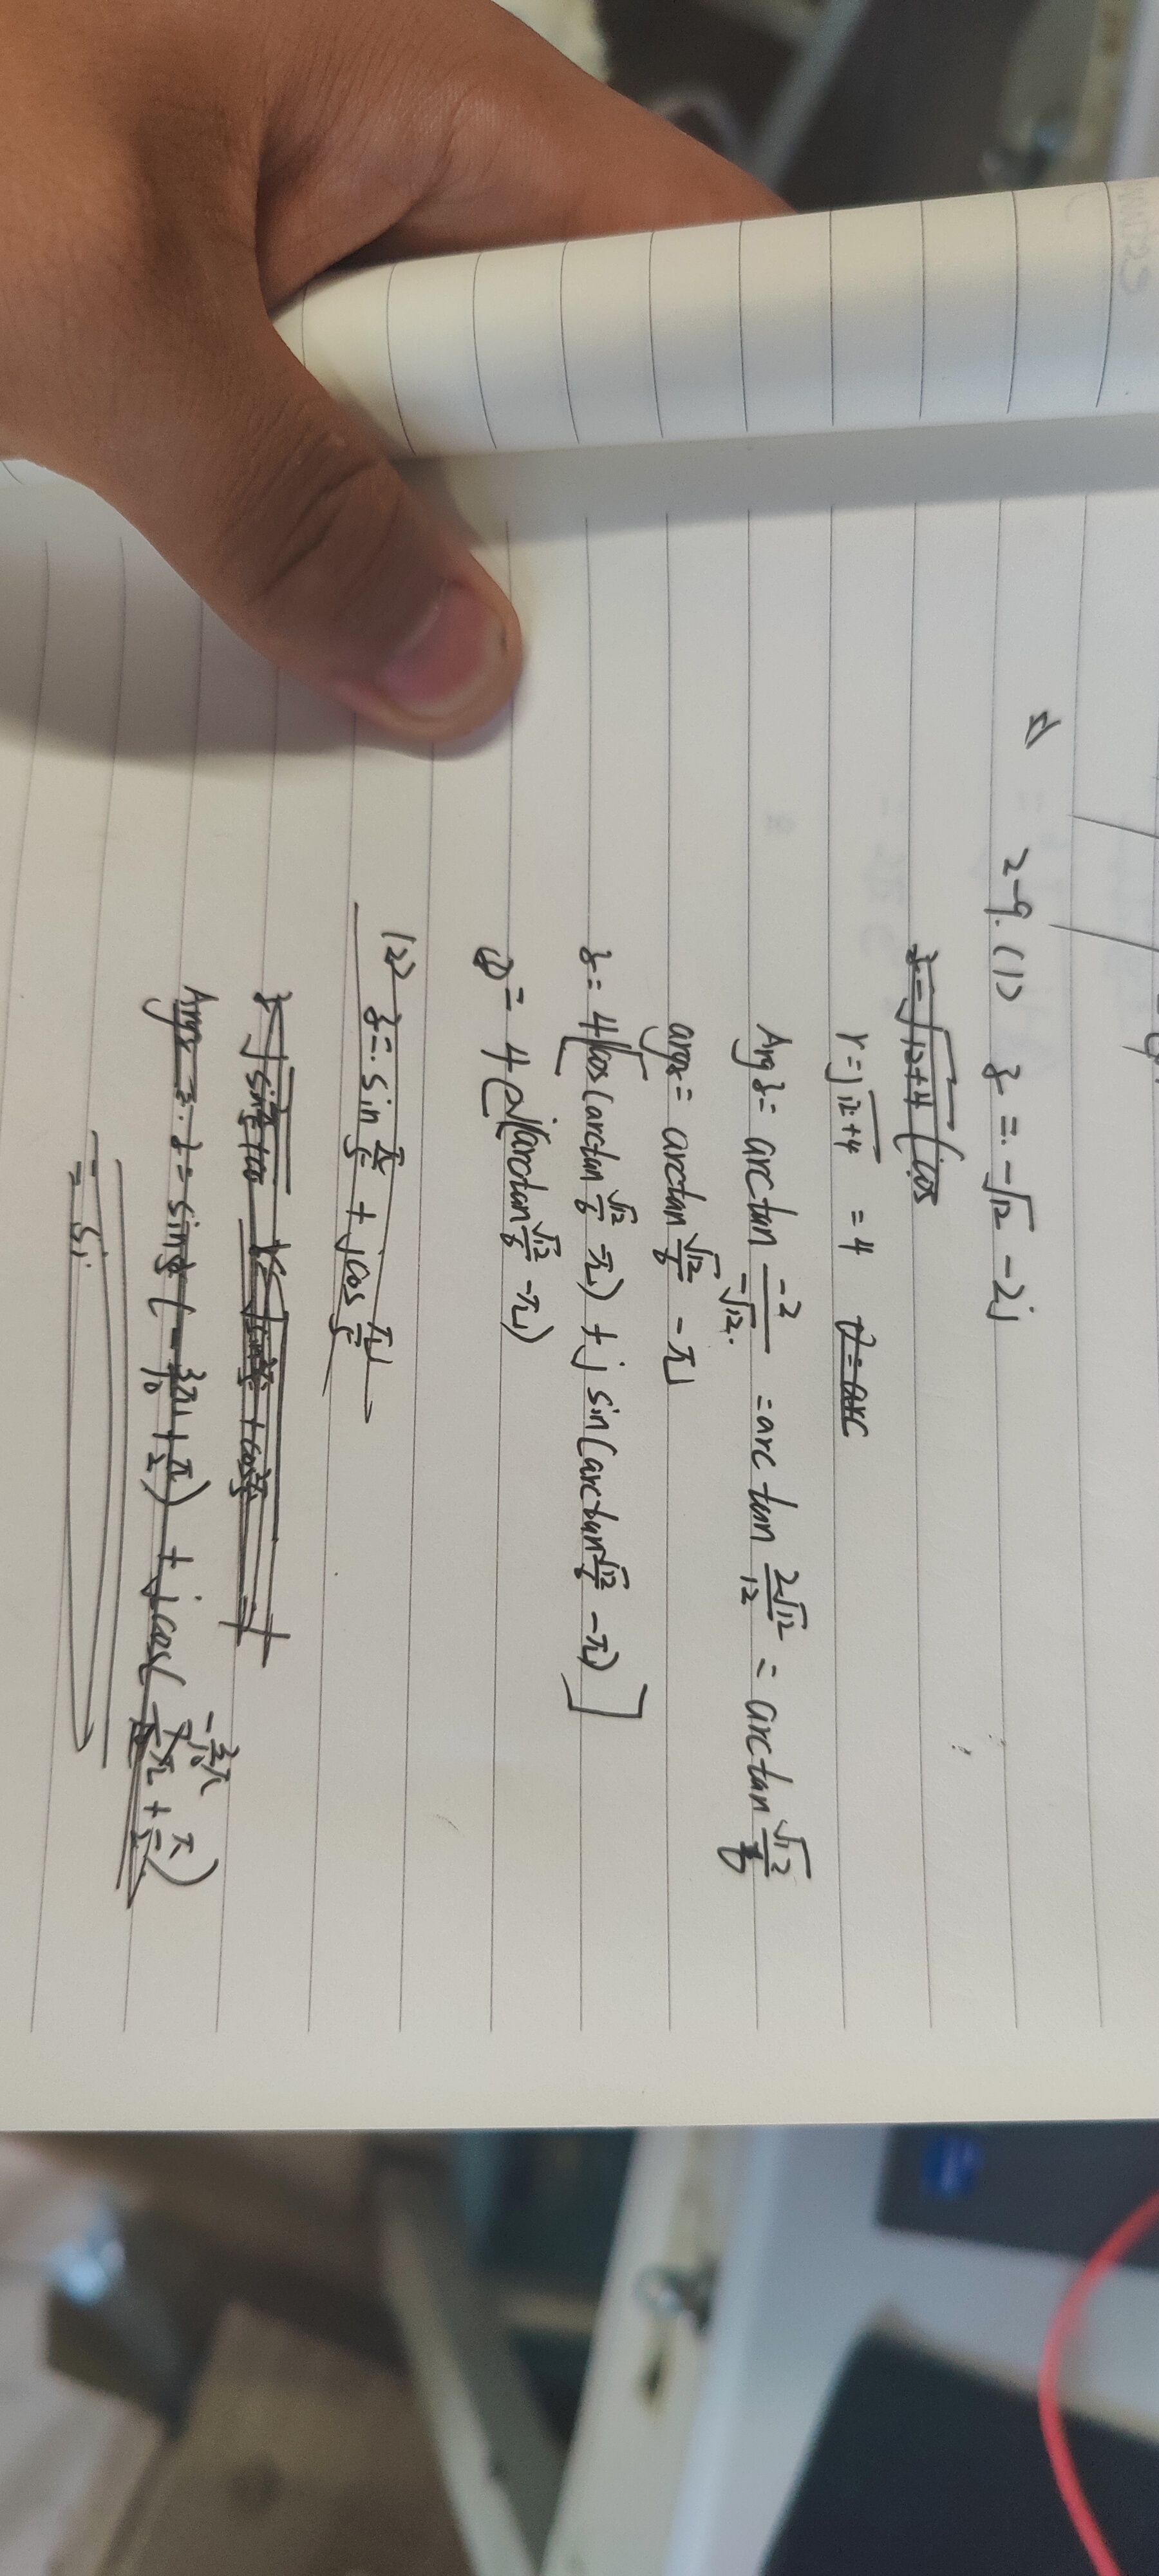 2-9. (1) z = -√12 - 2j
z = √12+4 (cos
r = √12+4 = 4 θ = arc
Arg z = arctan -2/-√12 = arc tan 2√12/12 = arctan √12/6
arg z = arctan √12/6 - π
z = 4[cos(arctan √12/6 - π) + j sin(arctan √12/6 - π)]
= 4e^j(arctan √12/6 - π)
(2) z = sin π/5 + jcos π/5
Arg z = z = sin (-3π/10 + π/2) + jcos( -3/10 π + π/2)
= si